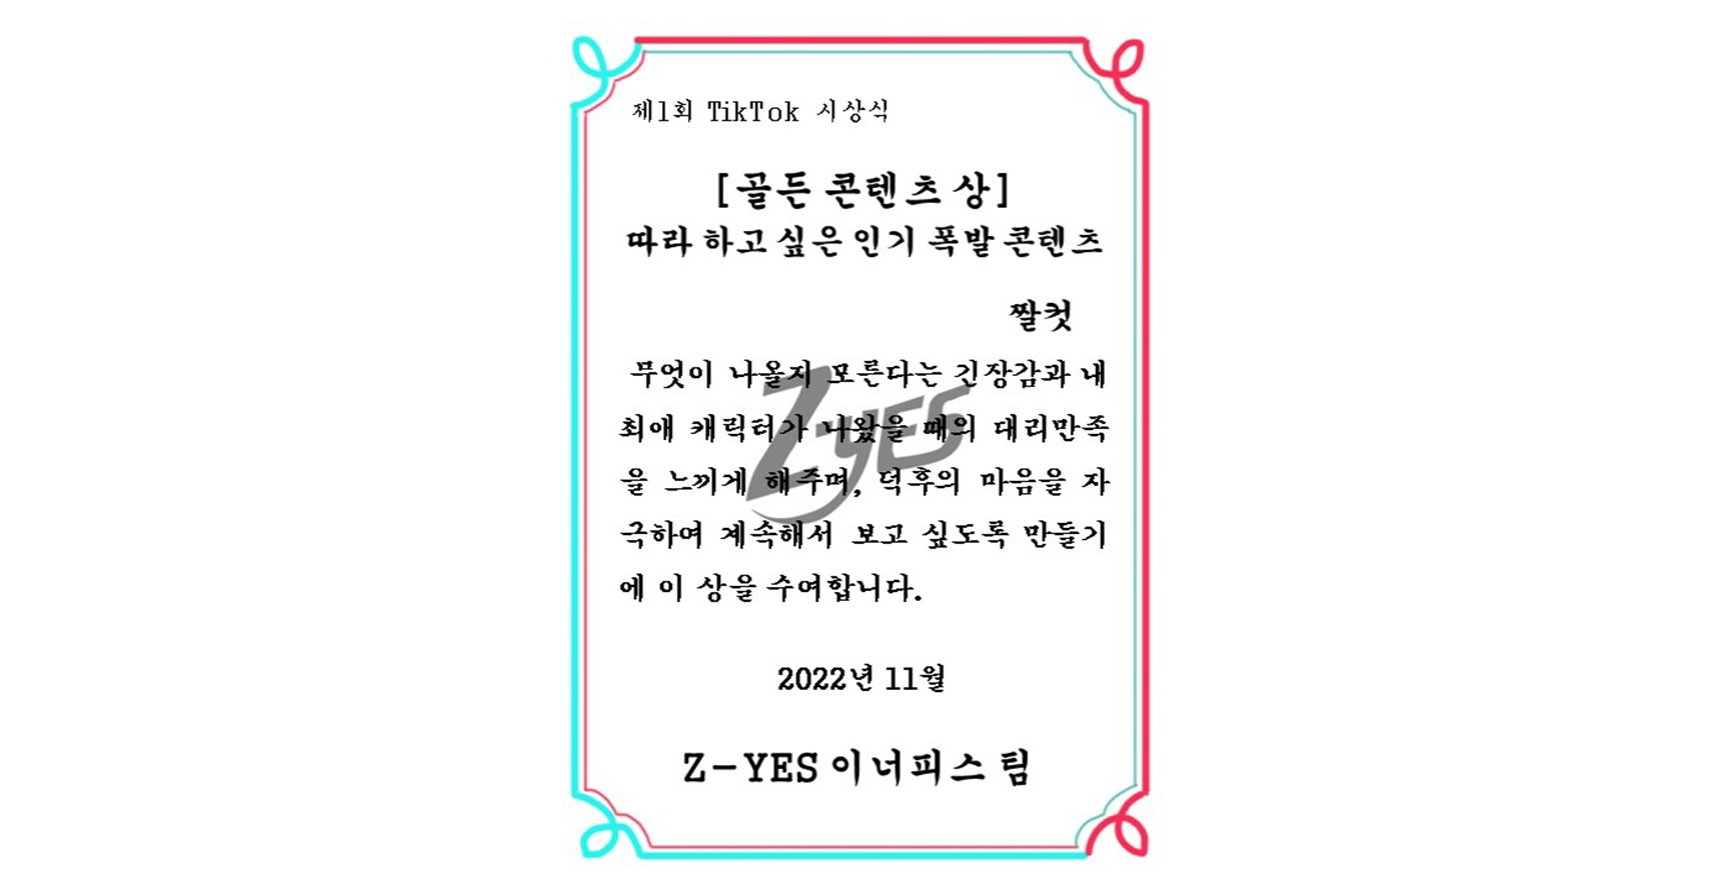 제1회 TikTok 시상식
[골든 콘텐츠 상]
따라 하고 싶은 인기 폭발 콘텐츠
짤컷
무엇이 나올지 모른다는 긴장감과 내
최애 캐릭터가 나왔을 때의 대리만족
을 느끼게 해주며, 덕후의 마음을 자
극하여 계속해서 보고 싶도록 만들기
에 이 상을 수여합니다.
Z-YES
2022년 11월
Z-YES 이너피스 팀